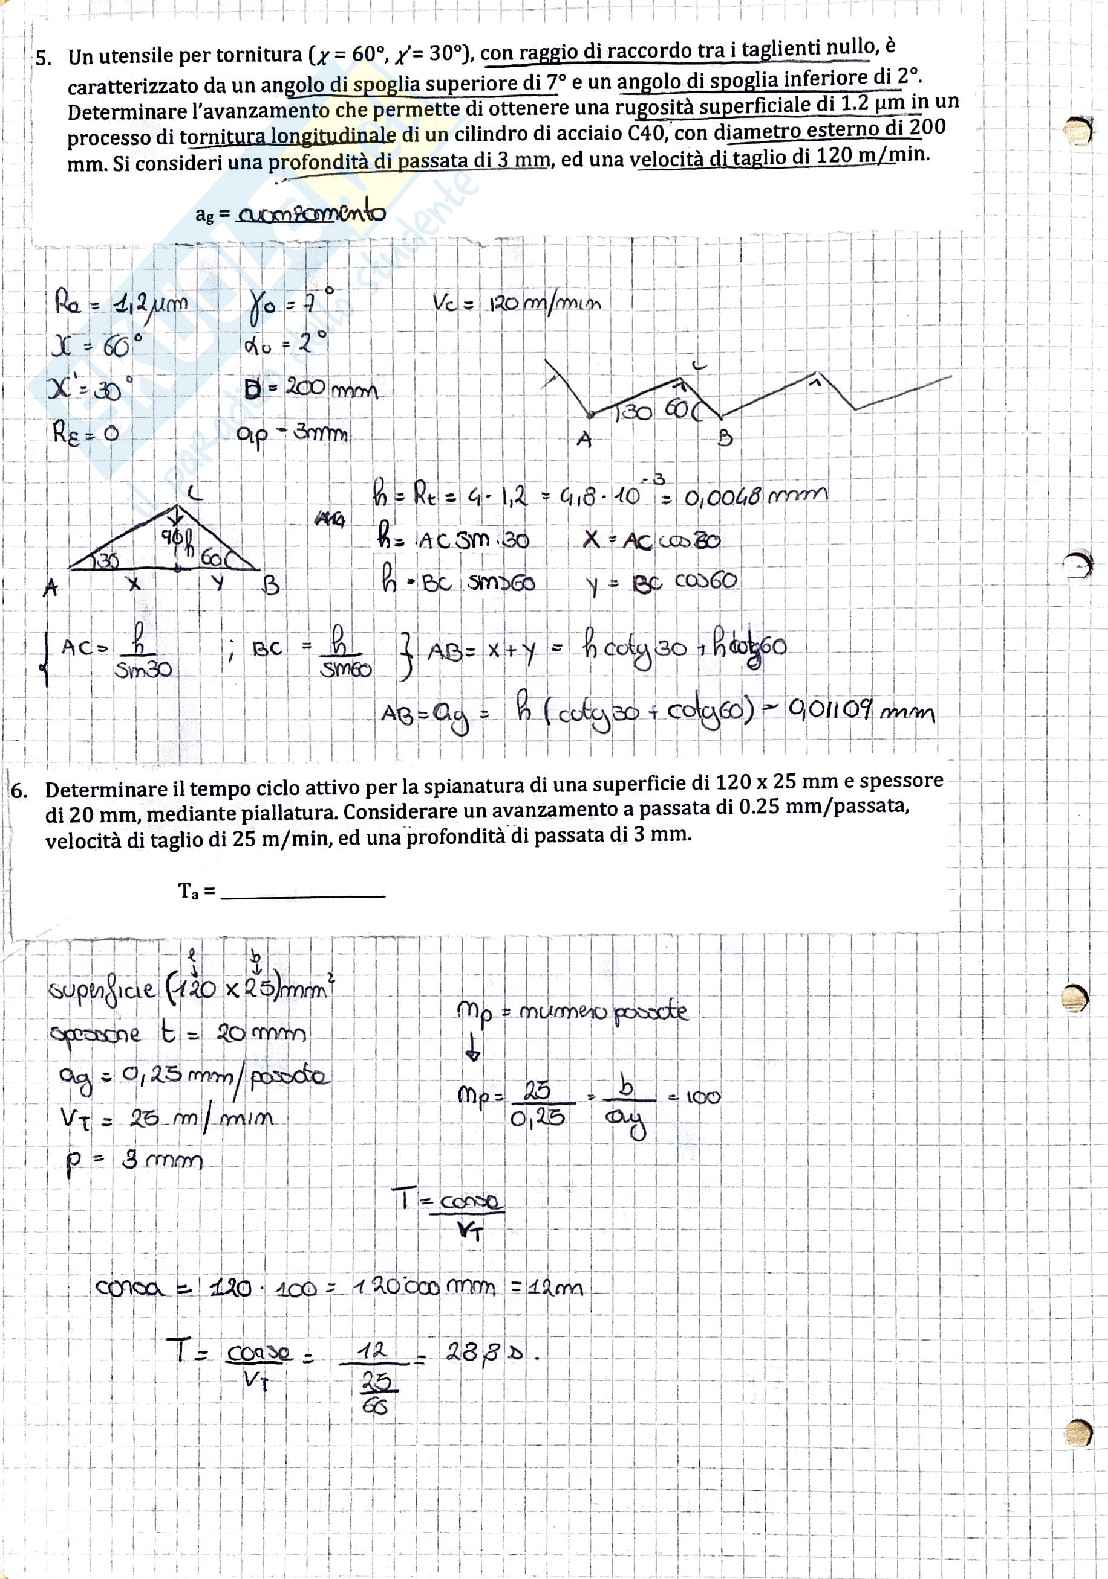 5. Un utensile per tornitura (χ = 60°, χ'= 30°), con raggio di raccordo tra i taglienti nullo, è
caratterizzato da un angolo di spoglia superiore di 7° e un angolo di spoglia inferiore di 2°.
Determinare l'avanzamento che permette di ottenere una rugosità superficiale di 1.2 µm in un
processo di tornitura longitudinale di un cilindro di acciaio C40, con diametro esterno di 200
mm. Si consideri una profondità di passata di 3 mm, ed una velocità di taglio di 120 m/min.
ag = avanzamento
Ra = 1,2 µm γo = 7° Vc = 120 m/min
χ = 60° αo = 2°
χ' = 30° D = 200 mm
Rε = 0 ap = 3mm
C
30 60
A B
C
90 h
30 60
A x y B
h = Rt = 4 · 1,2 = 4,8 · 10^-3 = 0,0048 mm
h = AC sin 30 x = AC cos 30
h = BC sin 60 y = BC cos 60
{ AC = h/sin30 ; BC = h/sin60 } AB = x + y = h cotg 30 + h cotg 60
AB = ag = h (cotg 30 + cotg 60) = 0,01109 mm
6. Determinare il tempo ciclo attivo per la spianatura di una superficie di 120 x 25 mm e spessore
di 20 mm, mediante piallatura. Considerare un avanzamento a passata di 0.25 mm/passata,
velocità di taglio di 25 m/min, ed una profondità di passata di 3 mm.
Ta = 
l b
superficie (120 x 25) mm²
spessore t = 20 mm
ag = 0,25 mm/passata
VT = 25 m/min
p = 3 mm
np = numero passate
↓
np = 25/0,25 = b/ag = 100
T = corsa/VT
corsa = 120 · 100 = 120000 mm = 12m
T = corsa/VT = 12/(25/60) = 28,8 s.